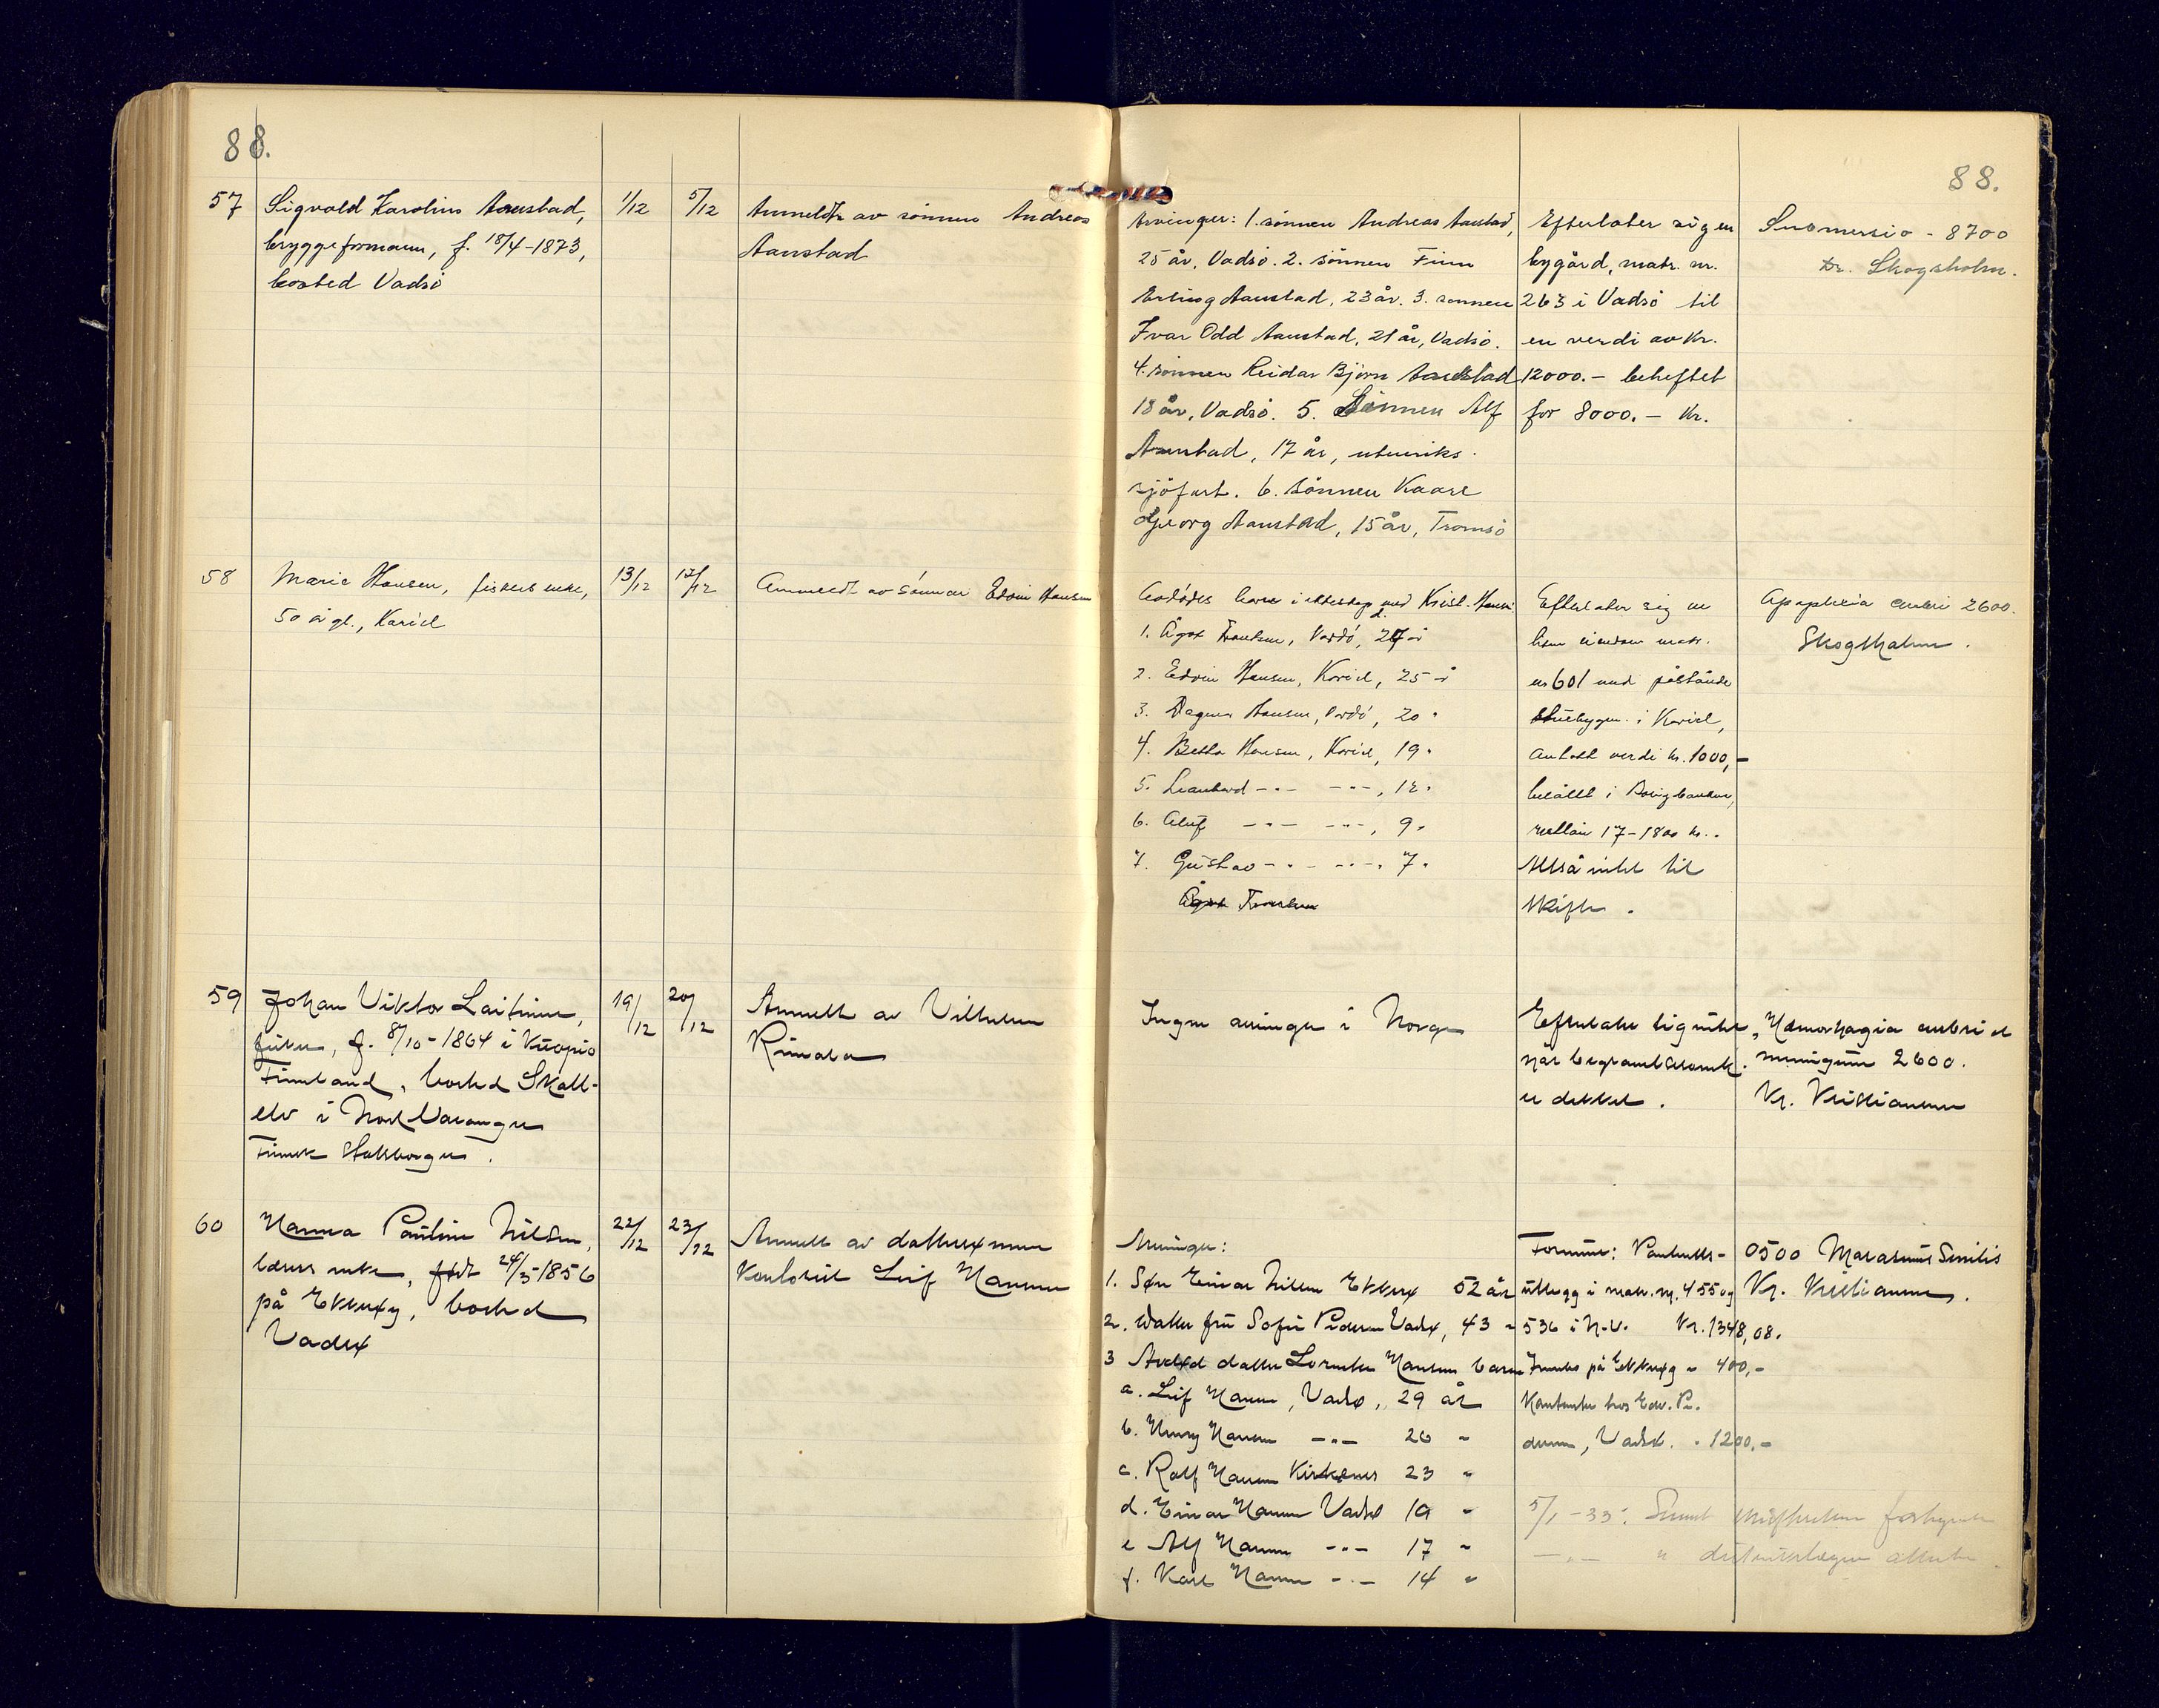 88.
57
Sigvald Karolius Aanstad,
bryggeformann, f. 18/4-1873,
bosted Vadsö
1/12
5/12
Anmeldt av sönnen Andreas
Aanstad
58
Marie Hansen, fiskers enke,
50 år gl., Kariel
13/12
17/12
Anmeldt av sönnen Edvin Hansen
59
Johan Viktor Laitinen,
f. 8/10-1864 i Kuopio
Finnland, bosted Skall-
elv i Nord Varanger
Finsk statsborger.
19/12
20/12
Anmeldt av Vilhelm
60
Hanna Pauline Nilsen,
enke, født 24/5 1856
på Ekkerøy, bosted
Vadsø
22/12
23/12
Anmeldt av dattersønnen
Kontorist Leif Hansen
88.
Arvinger: 1. sönnen Andreas Aanstad,
25 år, Vadsö. 2. sönnen Finn
Erling Aanstad, 23 år. 3. sönnen
Ivar Odd Aanstad, 21 år, Vadsö.
4. sönnen Reidar Björn Aanstad
18 år, Vadsö. 5. Sönnen Alf
Aanstad, 17 år, utenriks
sjöfart. 6. sönnen Kaare
Georg Aanstad, 15 år, Tromsö
Efterlater sig en
bygård, matr. nr.
263 i Vadsö til
en verdi av Kr.
12000.- beheftet
for 8000.- Kr.
8700
Dr. Skogsholm.
Avdödes barn i ekteskap med Krist. Hansen
1. Vardö, 27 år
2. Edvin Hansen, Kariel, 25 år
3. Dagmar Hansen, Vardö, 20 "
4. Betha Hansen, Kariel, 19 "
5. Leonhard -"- -"-, 12 "
6. Aluf -"- -"-, 9 "
7. Gustav -"- -"-, 7 "
Efterlater sig en
liten eiendom matr.
nr 601 med påstående
stuebygn. i Kariel,
antatt verdi kr. 1000,-
belånt i Boligbanken,
mellem 17-1800 kr.
Altså intet til
skifte.
Apoplexia cerebri 2600.
Skogsholm.
Ingen arvinger i Norge
Efterlater sig intet
når begravelsesomk.
er dekket.
Hæmorhagia cerebri et
meningum 2600.
Kr. Kristiansen
Arvinger:
1. Søn Einar Nilsen Ekkerø 52 år
2. Datter fru Sofie Pedersen Vadsø, 43 "
3 Avdød datter Hansens barn
a. Leif Hansen, Vadsø, 29 år
b. Henry Hansen -"- 26 "
c. Rolf Hansen Kirkenes 23 "
d. Einar Hansen Vadsø 19 "
e Alf Hansen -"- 17 "
f. Karl Hansen -"- 14 "
Formue: Panteutlegg
i matr. nr. 455 og
536 i N.V. Kr. 1348,08.
på Ekkerøy " 400,-
Kontanter hos Edv. Pe-
dersen, Vadsø. " 1200.-
5/1-33: Sendt
-"- " distriktslægen
0500 Marasmus Senilis
Kr. Kristiansen.